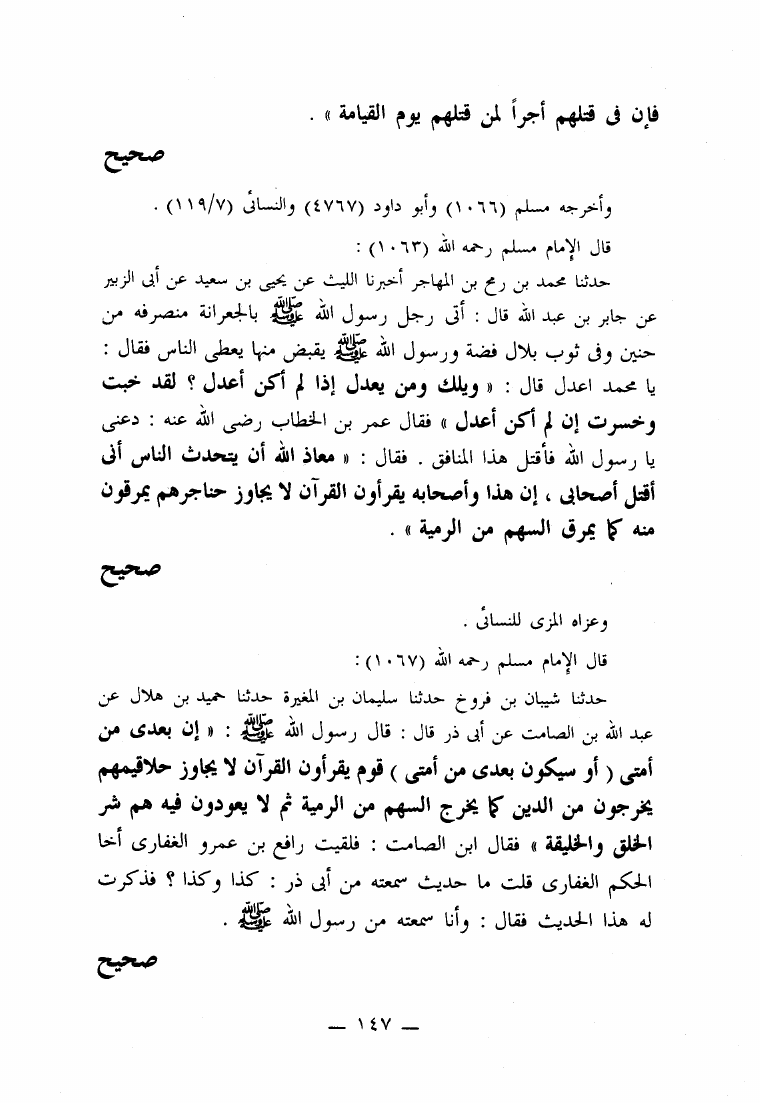 فإن فى قتلهم أجراً لمن قتلهم يوم القيامة » .
صحيح
وأخرجه مسلم (١٠٦٦) وأبو داود (٤٧٦٧) والنسائى (١١٩/٧) .
قال الإمام مسلم رحمه الله (١٠٦٣) :
حدثنا محمد بن رمح بن المهاجر أخبرنا الليث عن يحيى بن سعيد عن أبى الزبير
عن جابر بن عبد الله قال : أتى رجل رسول الله ﷺ بالجعرانة منصرفه من
حنين وفى ثوب بلال فضة ورسول الله ﷺ يقبض منها يعطى الناس فقال :
يا محمد اعدل قال : « ويلك ومن يعدل إذا لم أكن أعدل ؟ لقد خبت
وخسرت إن لم أكن أعدل » فقال عمر بن الخطاب رضى الله عنه : دعنى
يا رسول الله فأقتل هذا المنافق . فقال : « معاذ الله أن يتحدث الناس أنى
أقتل أصحابى ، إن هذا وأصحابه يقرأون القرآن لا يجاوز حناجرهم يمرقون
منه كما يمرق السهم من الرمية » .
صحيح
وعزاه المزى للنسائى .
قال الإمام مسلم رحمه الله (١٠٦٧) :
حدثنا شيبان بن فروخ حدثنا سليمان بن المغيرة حدثنا حميد بن هلال عن
عبد الله بن الصامت عن أبى ذر قال : قال رسول الله ﷺ : « إن بعدى من
أمتى ( أو سيكون بعدى من أمتى ) قوم يقرأون القرآن لا يجاوز حلاقيمهم
يخرجون من الدين كما يخرج السهم من الرمية ثم لا يعودون فيه هم شر
الخلق والخليقة » فقال ابن الصامت : فلقيت رافع بن عمرو الغفارى أخا
الحكم الغفارى قلت ما حديث سمعته من أبى ذر : كذا وكذا ؟ فذكرت
له هذا الحديث فقال : وأنا سمعته من رسول الله ﷺ .
صحيح
— ١٤٧ —